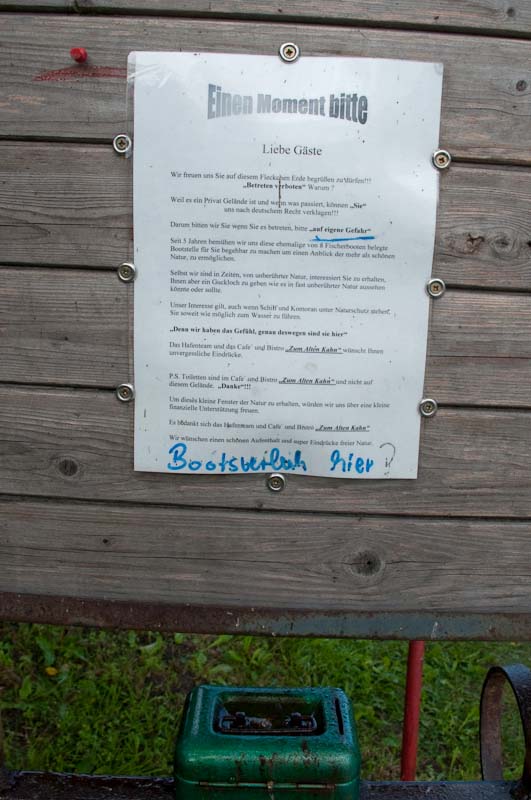 Einen Moment bitte
Liebe Gäste
Wir freuen uns Sie auf diesem Fleckchen Erde begrüßen zu dürfen!!!
„Betreten verboten" Warum ?
Weil es ein Privat Gelände ist und wenn was passiert, können „Sie"
uns nach deutschem Recht verklagen!!!
Darum bitten wir Sie wenn Sie es betreten, bitte „auf eigene Gefahr"
Seit 5 Jahren bemühen wir uns diese ehemalige von 8 Fischerbooten belegte
Bootstelle für Sie begehbar zu machen um einen Anblick der mehr als schönen
Natur, zu ermöglichen.
Selbst wir sind in Zeiten, von unberührter Natur, interessiert Sie zu erhalten,
Ihnen aber ein Guckloch zu geben wie es in fast unberührter Natur aussehen
könnte oder sollte.
Unser Interesse gilt, auch wenn Schilf und Komoran unter Naturschutz stehen,
Sie soweit wie möglich zum Wasser zu führen.
„Denn wir haben das Gefühl, genau deswegen sind sie hier"
Das Hafenteam und das Cafe´ und Bistro „Zum Alten Kahn" wünscht Ihnen
unvergessliche Eindrücke.
P.S. Toiletten sind im Cafe´ und Bistro „Zum Alten Kahn" und nicht auf
diesem Gelände. „Danke"!!!
Um dieses kleine Fenster der Natur zu erhalten, würden wir uns über eine kleine
finanzielle Unterstützung freuen.
Es bedankt sich das Hafenteam und Cafe´ und Bistro „Zum Alten Kahn"
Wir wünschen einen schönen Aufenthalt und super Eindrücke freier Natur.
hier ?